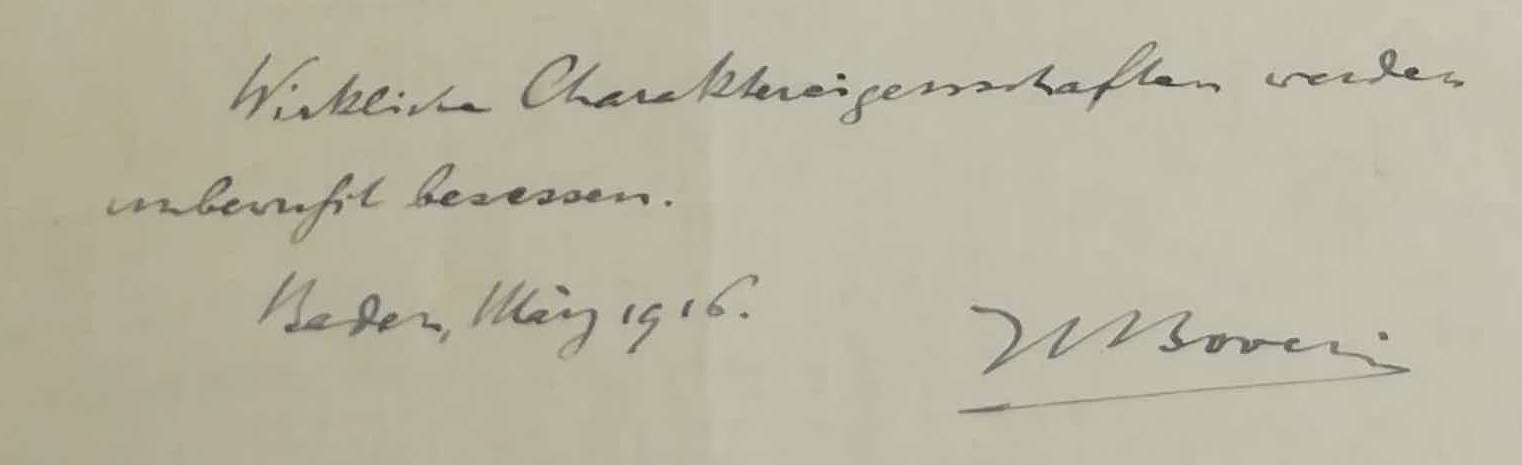 Wirkliche Charaktereigenschaften werden
unbewußt besessen.
Baden, März 1916.
W Boveri